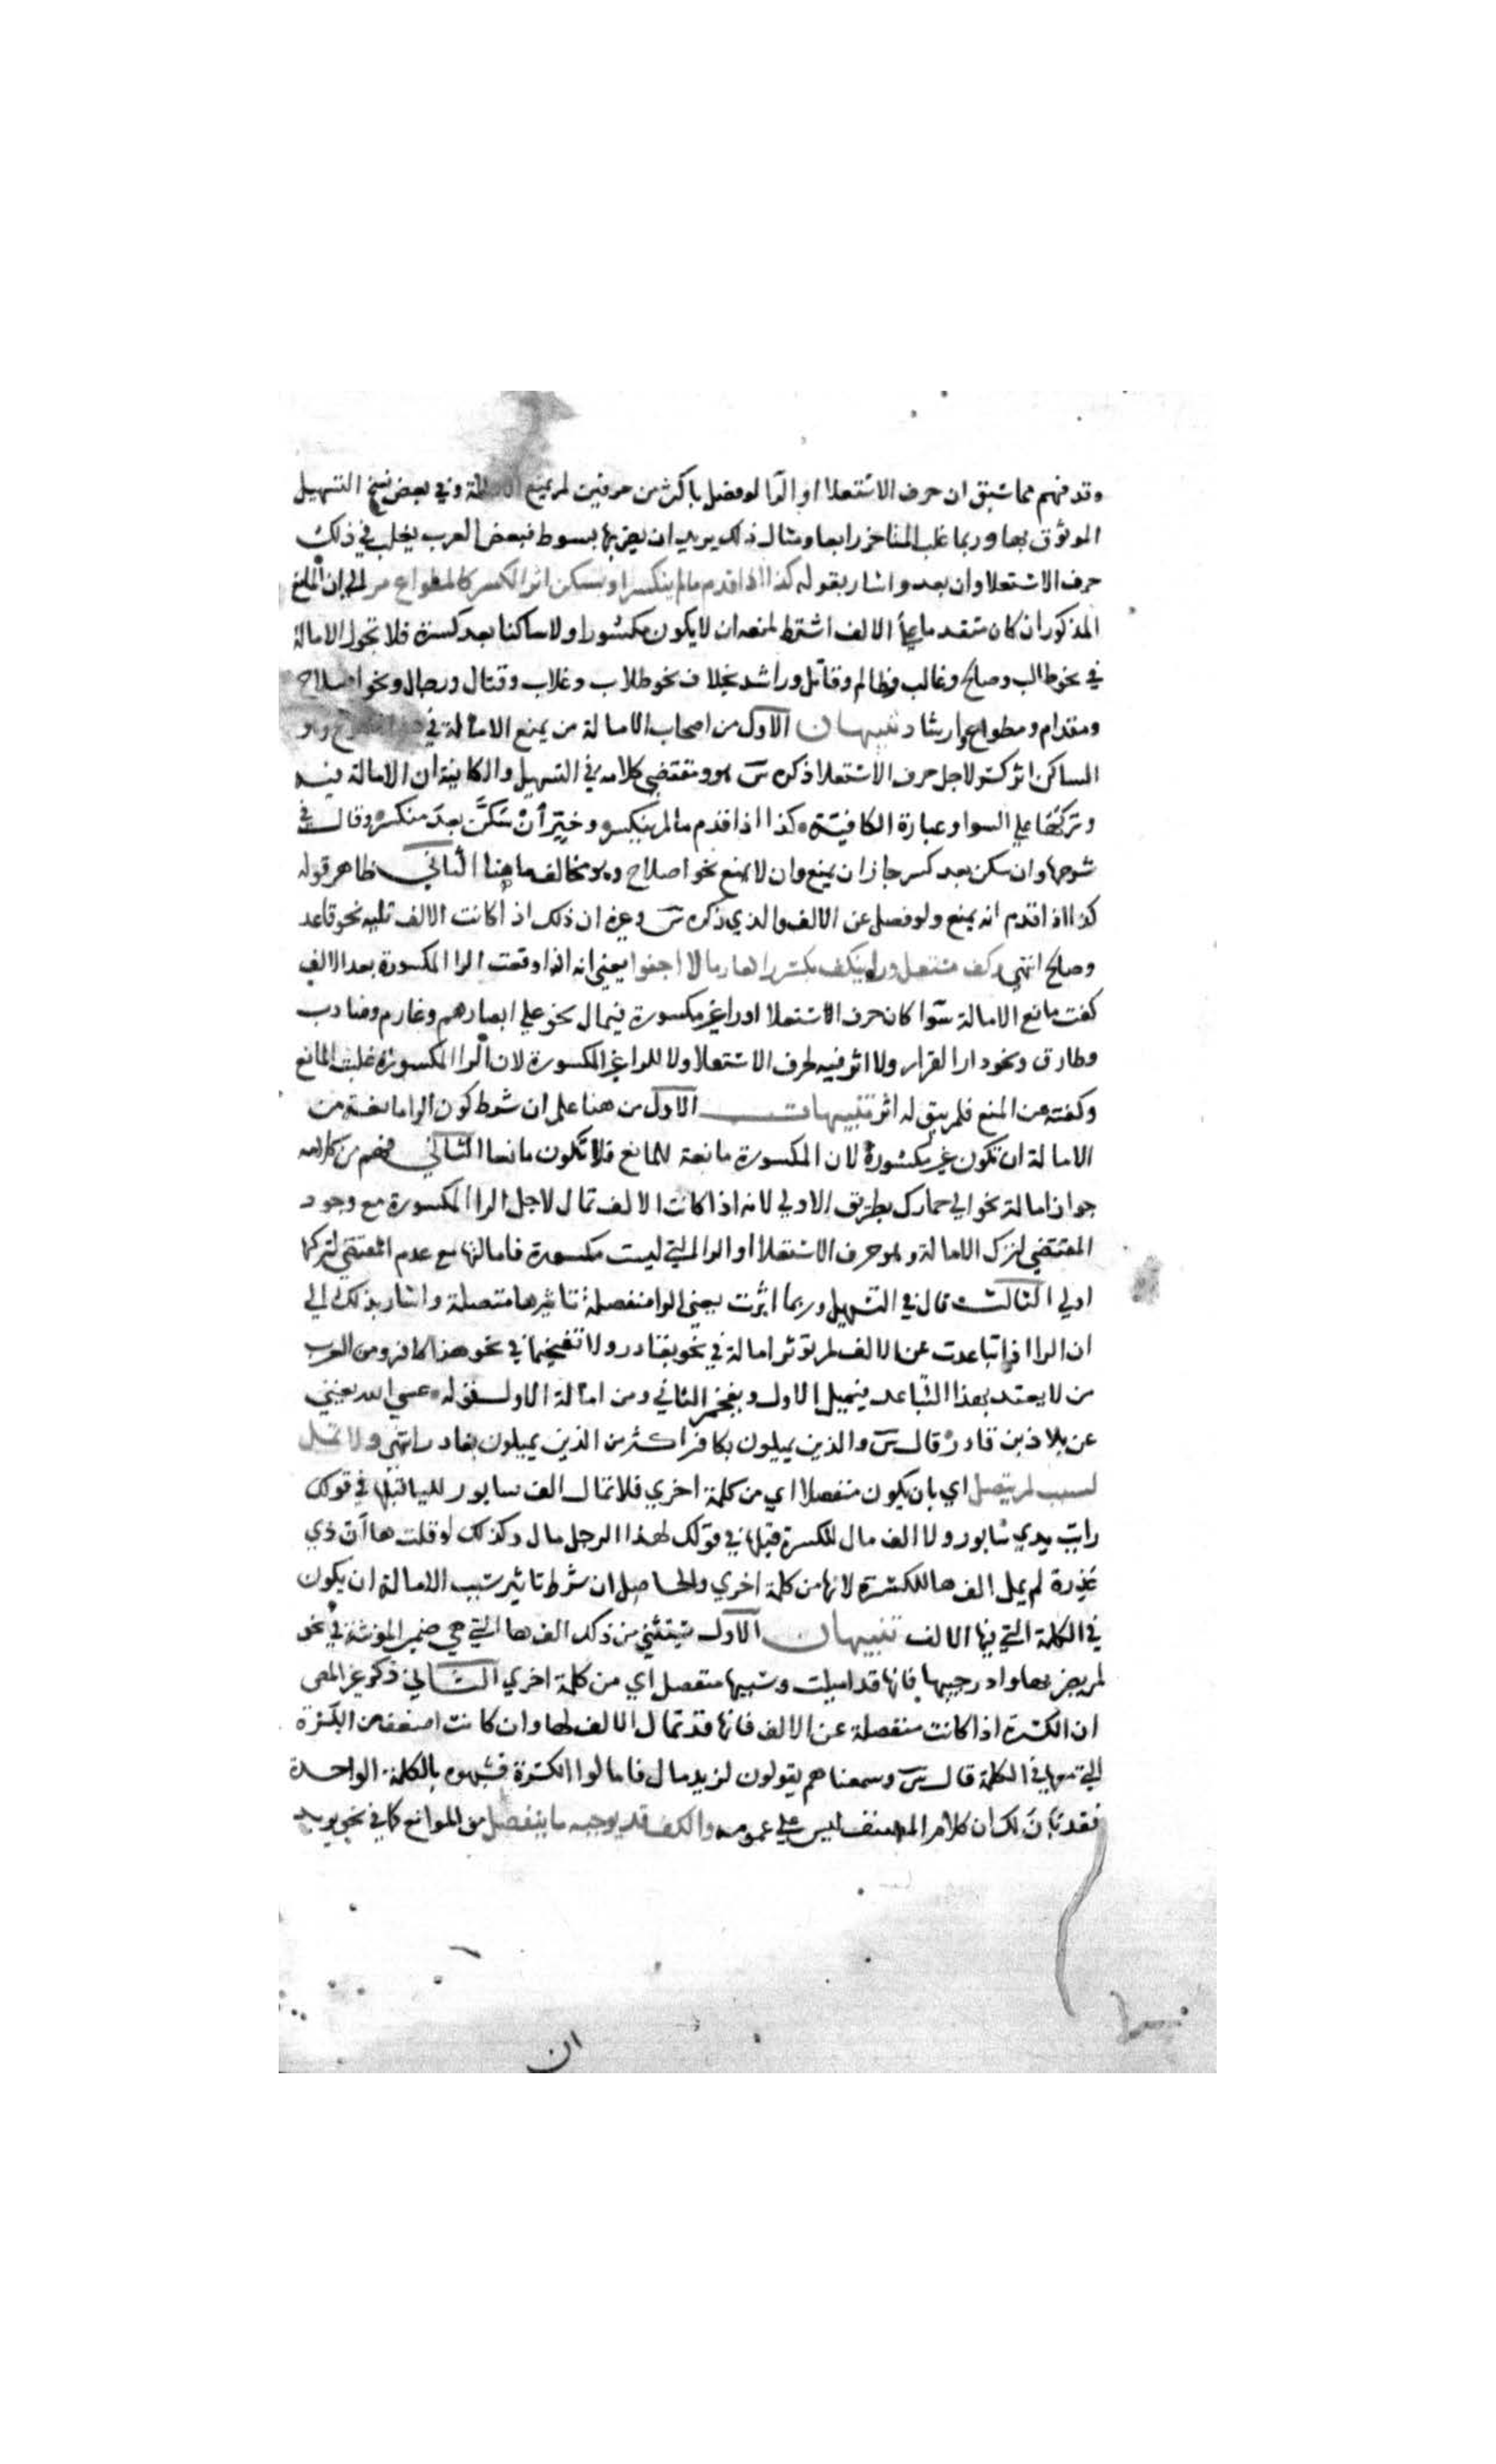 وقد فهم مما سبق ان حرف الاستعلا او الرا لو فصل باكثر من حرفين لم يمنع الامالة وفي بعض نسخ التسهيل
الموثوق بها وربما غلب المتاخر رابعا ومثال ذلك يريد ان يضربها بسوط فبعض العرب يغلب في ذلك
حرف الاستعلا وان بعد واشار بقوله كذا اذا قدم ما لم ينكسر او يسكن اثر الكسر كالمطواع مر الي ان المانع
المذكور ان كان متقدما علي الالف اشترط لمنعه ان لا يكون مكسورا ولا ساكنا بعد كسرة فلا تجوز الامالة
في نحو طالب وصالح وغالب وظالم وقاتل وراشد بخلاف نحو طلاب وغلاب وقتال ورجال ونحو اصلاح
ومقدام ومطواع وارشاد تنبيهان الاول من اصحاب الامالة من يمنع الامالة في هذا النوع وهو
الساكن اثر كسر لاجل حرف الاستعلا ذكره س ومقتضي كلامه في التسهيل والكافية ان الامالة فيه
وتركها علي السوا وعبارة الكافية وكذا اذا قدم ما لم ينكسر وخير ان سكن بعد منكسر وقال في
شرحها وان سكن بعد كسر جاز ان يمنع وان لا يمنع نحو اصلاح وهو مخالف ما هنا الثاني ظاهر قوله
كذا اذا قدم انه يمنع ولو فصل عن الالف والذي ذكره س وغيره ان ذلك اذا كانت الالف تليه نحو قاعد
وصالح انتهي وكف مستعل ورا ينكف بكسر را كغارما لا اجفوا يعني انه اذا وقعت الرا المكسورة بعد الالف
كفت مانع الامالة سوا كان حرف الاستعلا او را غير مكسورة فيمال نحو علي ابصارهم وغارم وضارب
وطارق ونحو دار القرار ولا اثر فيه لحرف الاستعلا ولا للرا غير المكسورة لان الرا المكسورة غلبت المانع
وكفته عن المنع فلم يبق له اثر تنبيهات الاول من هنا علم ان شرط كون الرا مانعة من
الامالة ان تكون غير مكسورة لان المكسورة مانعة للمانع فلا تكون مانعا الثاني فهم من كلامه
جواز امالة نحو الي حمارك بطريق الاولي لانه اذا كانت الالف تمال لاجل الرا المكسورة مع وجود
المقتضي لترك الامالة وهو حرف الاستعلا او الرا التي ليست مكسورة فامالتها مع عدم المقتضي لتركها
اولي الثالث قال في التسهيل وربما اثرت يعني الرا منفصلة تاثيرها متصلة واشار بذلك الي
ان الرا اذا تباعدت عن الالف لم توثر امالة في نحو بقادر ولا تفخيما في نحو هذا كافر ومن العرب
من لا يعتد بهذا التباعد فيميل الاول ويفخم الثاني ومن امالة الاول قوله عسي الله يغني
عن بلاد بن قادر قال س والذين يميلون بكافر اكثر من الذين يميلون بقادر انتهي ولا تمل
لسبب لم يتصل اي بان يكون منفصلا اي من كلمة اخري فلا تمال الف سابور لليا قبلها في قولك
رايت يدي سابور ولا الف مال للكسرة قبلها في قولك لهذا الرجل مال وكذلك لو قلت ها ان ذي
عذرة لم يمل الف ها للكسرة لانها من كلمة اخري والحاصل ان شرط تاثير سبب الامالة ان يكون
في الكلمة التي فيها الالف تنبيهان الاول يستثني من ذلك الف ها التي هي ضمير المونثة في نحو
لم يضربها وادر جيبها فانها قد اميلت وسببها منفصل اي من كلمة اخري الثاني ذكر غير المص
ان الكسرة اذا كانت منفصلة عن الالف فانها قد تمال الالف لها وان كانت اضعف من الكسرة
التي معها في الكلمة قال س وسمعناهم يقولون لزيد مال فامالوا للكسرة فشبهوه بالكلمة الواحدة
فقد بان لك ان كلام المصنف ليس علي عمومه والكف قد يوجبه ما ينفصل من الموانع كما في نحو يريد
ان